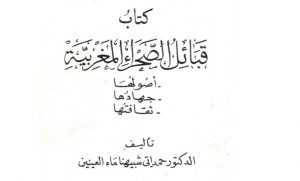 كتاب
قبائل الصحراء المغربية
- أصولها
- جهادها
- ثقافتها
تأليف
الدكتور حمداتي شبيهنا ماء العينين